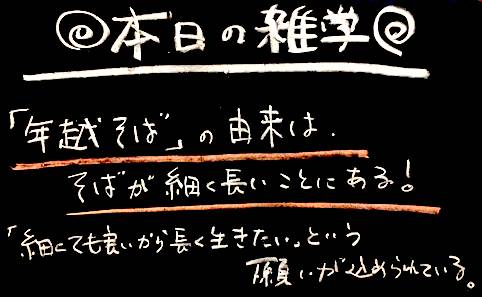 本日の雑学
「年越そば」の由来は、
そばが細く長いことにある!
「細くても良いから長く生きたい。という
願いが込められている。